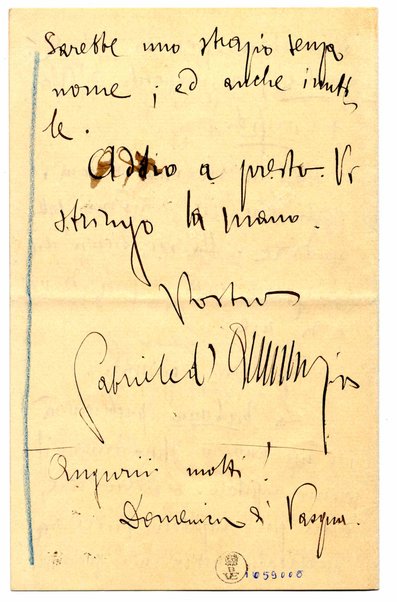 Sarebbe uno strazio senza
nome; ed anche inuti-
le.
Addio a presto. Vi
stringo la mano.
Vostro
Gabriele d'Annunzio
Augurii molti!
Domenica di Pasqua.
1059008